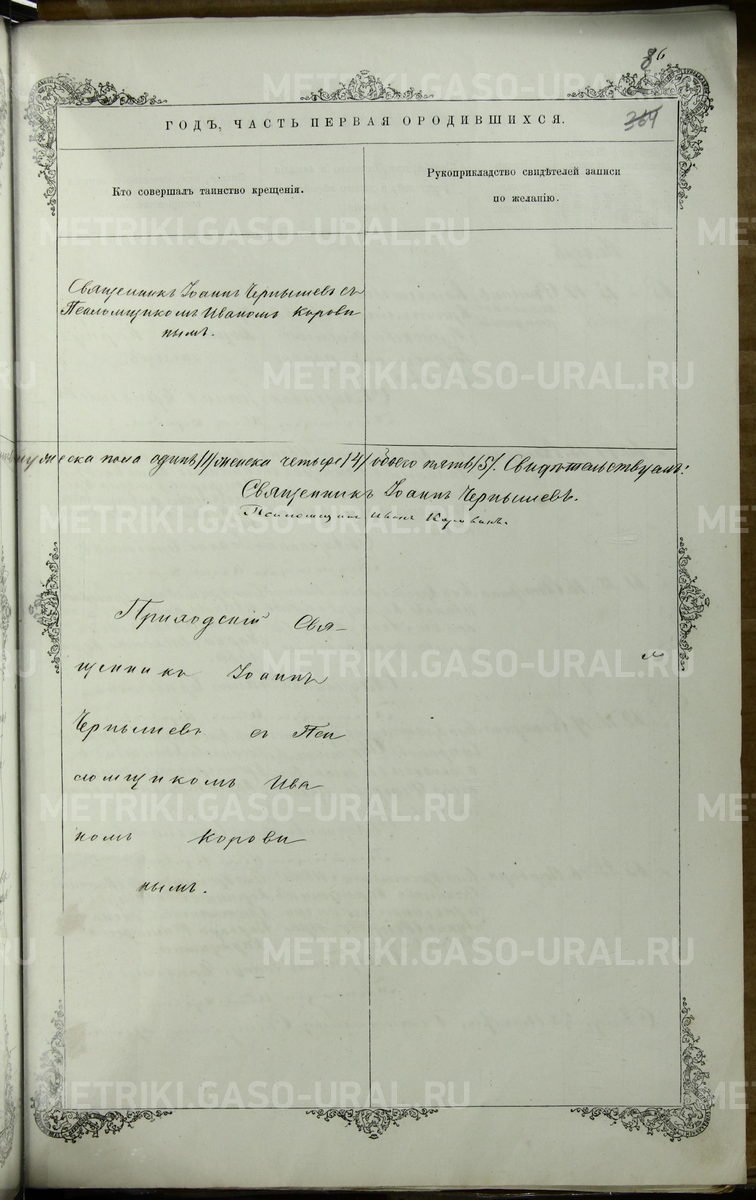 86
364
ГОДЪ, ЧАСТЬ ПЕРВАЯ О РОДИВШИХСЯ.
Кто совершалъ таинство крещенія.
Рукоприкладство свидѣтелей записи
по желанію.
Священникъ Іоаннъ Чернышевъ съ
Псаломщикомъ Иваномъ Корови
нымъ.
мужеска пола одинъ /1/ женска четыре /4/ обоего пять /5/. Свидѣтельствуемъ:
Священникъ Іоаннъ Чернышевъ.
Псаломщикъ Иванъ Коровинъ.
Приходскій Свя-
щенникъ Іоаннъ
Чернышевъ съ Пса
ломщикомъ Ива
номъ Корови
нымъ.
METRIKI.GASO-URAL.RU